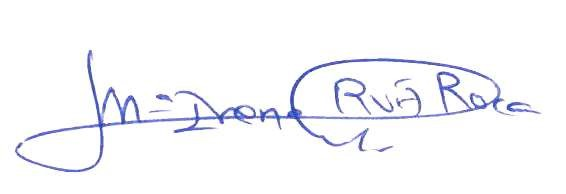 Mª Irene Rua Roca